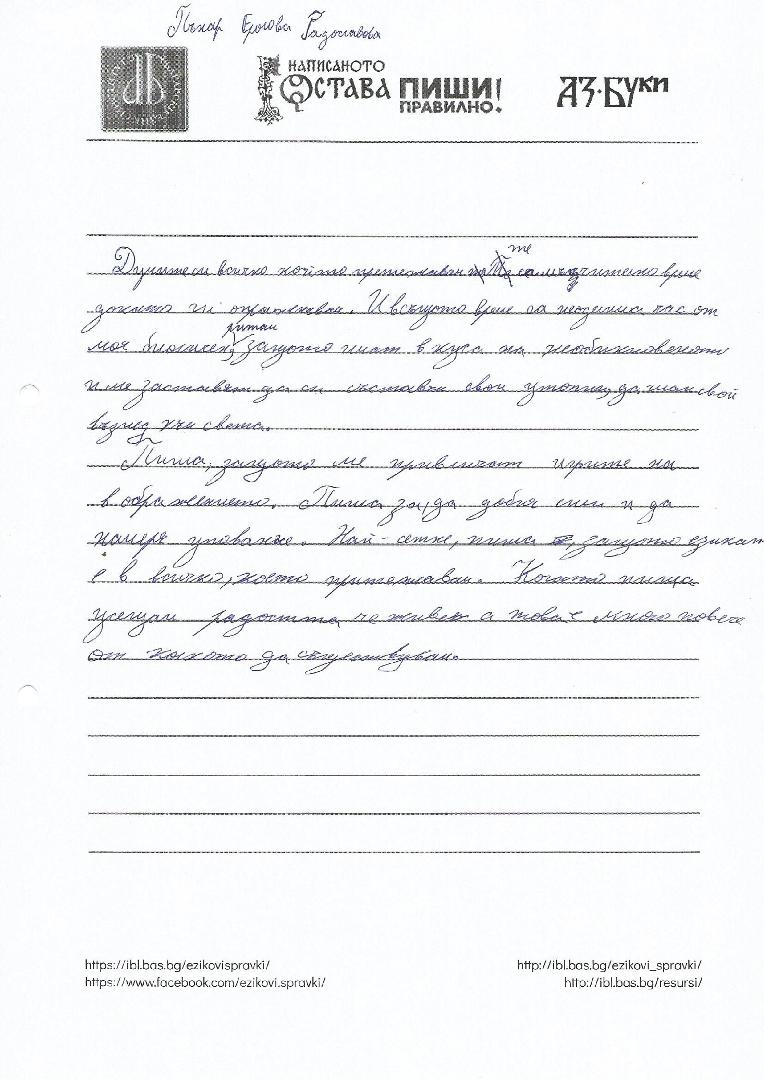 НАПИСАНОТО
ОСТАВА ПИШИ
ПРАВИЛНО!
АЗ·БУКИ
Думите са всичко което притежавам те са мъчително време
докато ги опражнявам. И в същото време са неделима част от
моя биологичен ритъм, защото имат вкуса на необикновеното
и ме заставят да си съставям свои утопии, да имам свой
възглед към света.
Пиша, защото ме привличат игрите на
въображението. Пиша за, да добия сили и да
намеря упование. Най-сетне, пиша, защото езикът
е в всичко, което притежавам. Когато пиша
усещам радостта че живея а това е много повече
от колкото да съществувам.
https://ibl.bas.bg/ezikovispravki/
https://www.facebook.com/ezikovi.spravki/
http://ibl.bas.bg/ezikovi_spravki/
http://ibl.bas.bg/resursi/